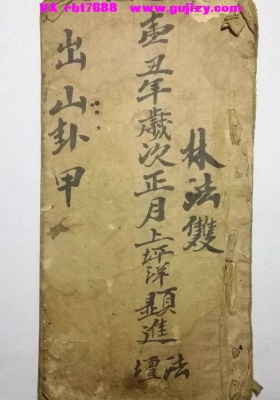 VX rbt7688 www.gujizy.com
林法雙
壼丑年歲次正月上坪洋顯進法壇
出山卦甲